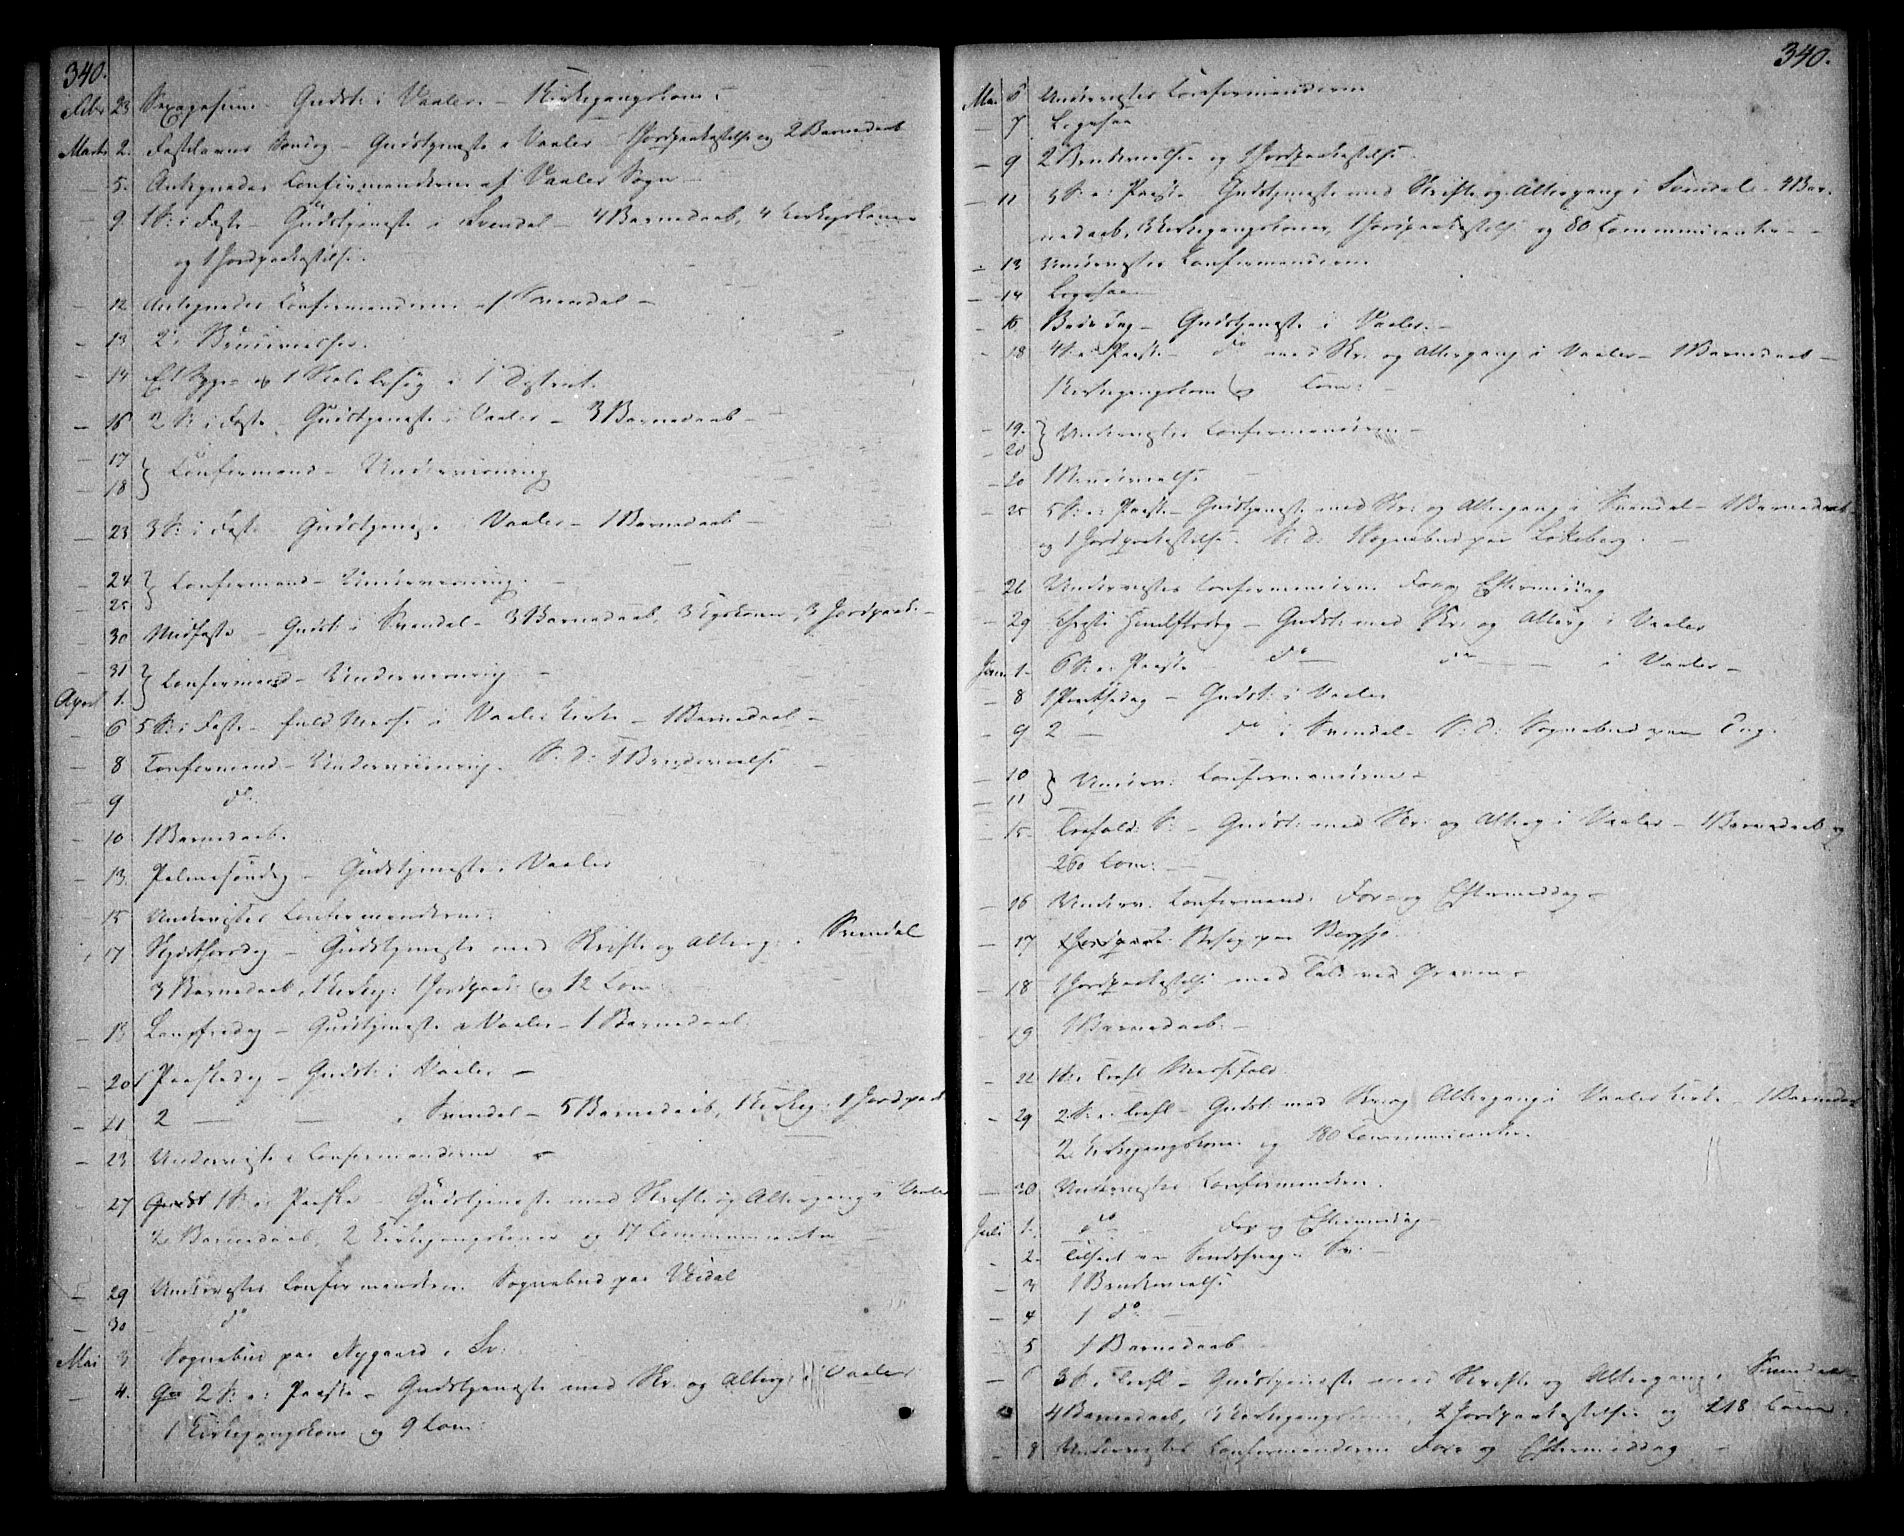 340.
Febr 23 Sexagesima - Gudst: i Vaaler. - 1 Kirkegangskone.
Marts 2. Fastelavns Søndag - Gudstjeneste i Vaaler - 1 Jordpaakastelse og 2 Barnedaab
— 5. Antegnedes Confirmanderne af Vaaler Sogn -
— 9 1 S: i Faste - Gudstjeneste i Svendal - 4 Barnedaab, 4 Kirkegskoner
og 1 Jordpaakastelse.
— 12 Antegnedes Confirmanderne af Svendal -
— 13 2
— 14 1 Skolebesøg i 1 District.
— 16 2 S: i Faste - Gudstjeneste i Vaaler - 3 Barnedaab -
17
— 18 } Confirmand - Underviisning
— 23 3 S: i Faste - Gudstjeneste i Vaaler - 1 Barnedaab -
— 24 } Confirmand - Underviisning. -
— 25
— 30 Midfaste - Gudst: i Svendal - 3 Barnedaab, 3 Kgskoner, 3 Jordpaak: -
31 } Confirmand - Underviisning -
April 1.
— 6 5 S: i Faste - fuld Messe i Vaaler Kirke - 1 Barnedaab -
— 8 Confirmand - Underviisning. S: D: 1 Brudevielse -
— 9 do.
— 10 1 Barnedaab.
— 13. Palmesøndag - Gudstjeneste i Vaaler
— 15 Undervistes Confirmanderne.
17 Skjærthorsdag - Gudstjeneste med Skrifte og Alterg: i Svendal
3 Barnedaab, 1 Kirkeg: 1 Jordpaak: og 12 Com:
— 18 Langfredag - Gudstjeneste i Vaaler - 1 Barnedaab.
— 20 1 Paaskedag - Gudst: i Vaaler -
— 21 2 — — i Svendal - 5 Barnedaab, 1 Kirkeg: 1 Jordpaak
— 23 Undervistes Confirmanderne -
— 27 1 S: e: Paaske - Gudstjeneste med Skrifte og Altergang i Vaaler
2 Barnedaab, 2 Kirkegangskoner og 17 Communicanter
— 29 Undervistes Confirmanderne. Sognebud paa
— 30 do
Mai 3 Sognebud paa Nygaard i Sv:
— 4. 2 S: e: Paaske - Gudstjeneste med Skr: og Alterg: i Vaaler
1 Kirkegangskone og 9 Com:
340.
Mai 6 Undervistes Confirmanderne
— 7 Ligesaa
— 9 2 Brudevielser og 1 Jordpaakastelse.
— 11 3 S: e: Paaske - Gudstjeneste med Skrifte og Altergang i Svendal - 4 Bar-
nedaab, 3 Kirkegangskoner, 1 Jordpaakastelse og 80 Communicanter -
— 13 Undervistes Confirmanderne
— 14 Ligesaa
— 16 Bededag - Gudstjeneste i Vaaler. -
— 18 4 S: e: Paaske - do med Skr: og Altergang i Vaaler - 1 Barnedaab -
1 Kirkegangskone og Com: -
— 19. } Undervistes Confirmanderne -
— 20
— 20 1 Brudevielse
— 25 5 S: e: Paaske - Gudstjeneste med Skr: og Altergang i Svendal - 1 Barnedaab
og 1 Jordpaakastelse. S: D: 1 Sognebud paa Løkeberg. -
— 26 Undervistes Confirmanderne For og Eftermiddag
— 29 Christi Himelfartsdag - Gudst: med Skr: og Alterg i Vaaler
Juni 1. 6 S: e: Paaske - do — do — i Vaaler -
— 8 1 Pintsedag - Gudst: i Vaaler
— 9 2 — do i Svendal - S: D: Sognebud paa Eng.
— 10 } Underv: Confirmanderne -
— 11
— 15 Trefold: S: - Gudst: med Skr: og Alterg i Vaaler - 1 Barnedaab og
260 Com: -
— 16 Underv: Confirmand: For- og Eftermiddag -
— 17 Besøg paa Bergsjø.
— 18 1 Jordpaakastelse med Tale ved Graven -
— 19 1 Barnedaab. -
— 22 1 S: e: Trefl: Messefald.
— 29 2 S: e: Trefl: - Gudst: med Skr: og Altergang i Vaaler Kirke - 1 Barnedaab
2 Kirkegangskoner og 180 Communicanter.
— 30 Undervistes Confirmanderne.
Juli 1. do - For og Eftermiddag -
2.
— 3 1 Brudevielse
— 4 1 do -
5 1 Barnedaab
— 6 3 S: e: Trefl: - Gudstjeneste med Skrifte og Altergang i Svendal -
4 Barnedaab, 3 Kirkegangskoner, 2 Jordpaakastelser og 218 Com:
— 8 Undervistes Confirmanderne For og Eftermiddag -